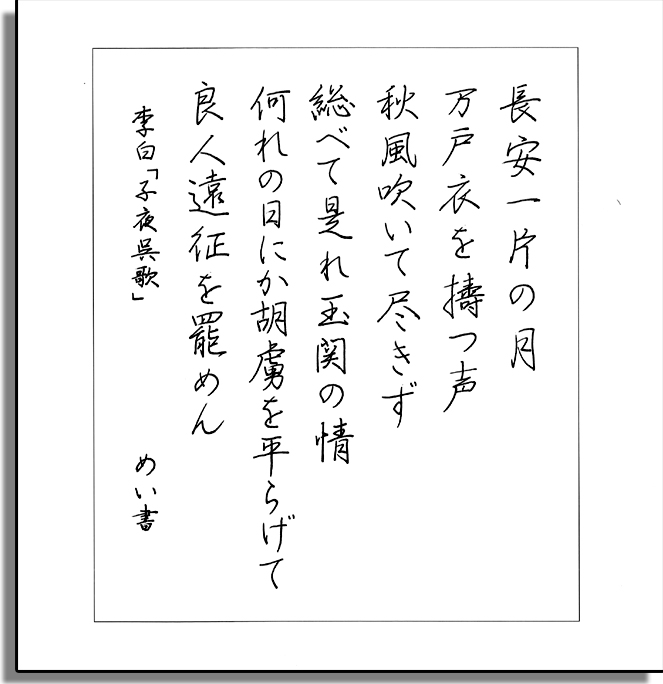 長安一片の月
万戸衣を擣つ声
秋風吹いて尽きず
総べて是れ玉関の情
何れの日にか胡虜を平らげて
良人遠征を罷めん
李白「子夜呉歌」
めい書